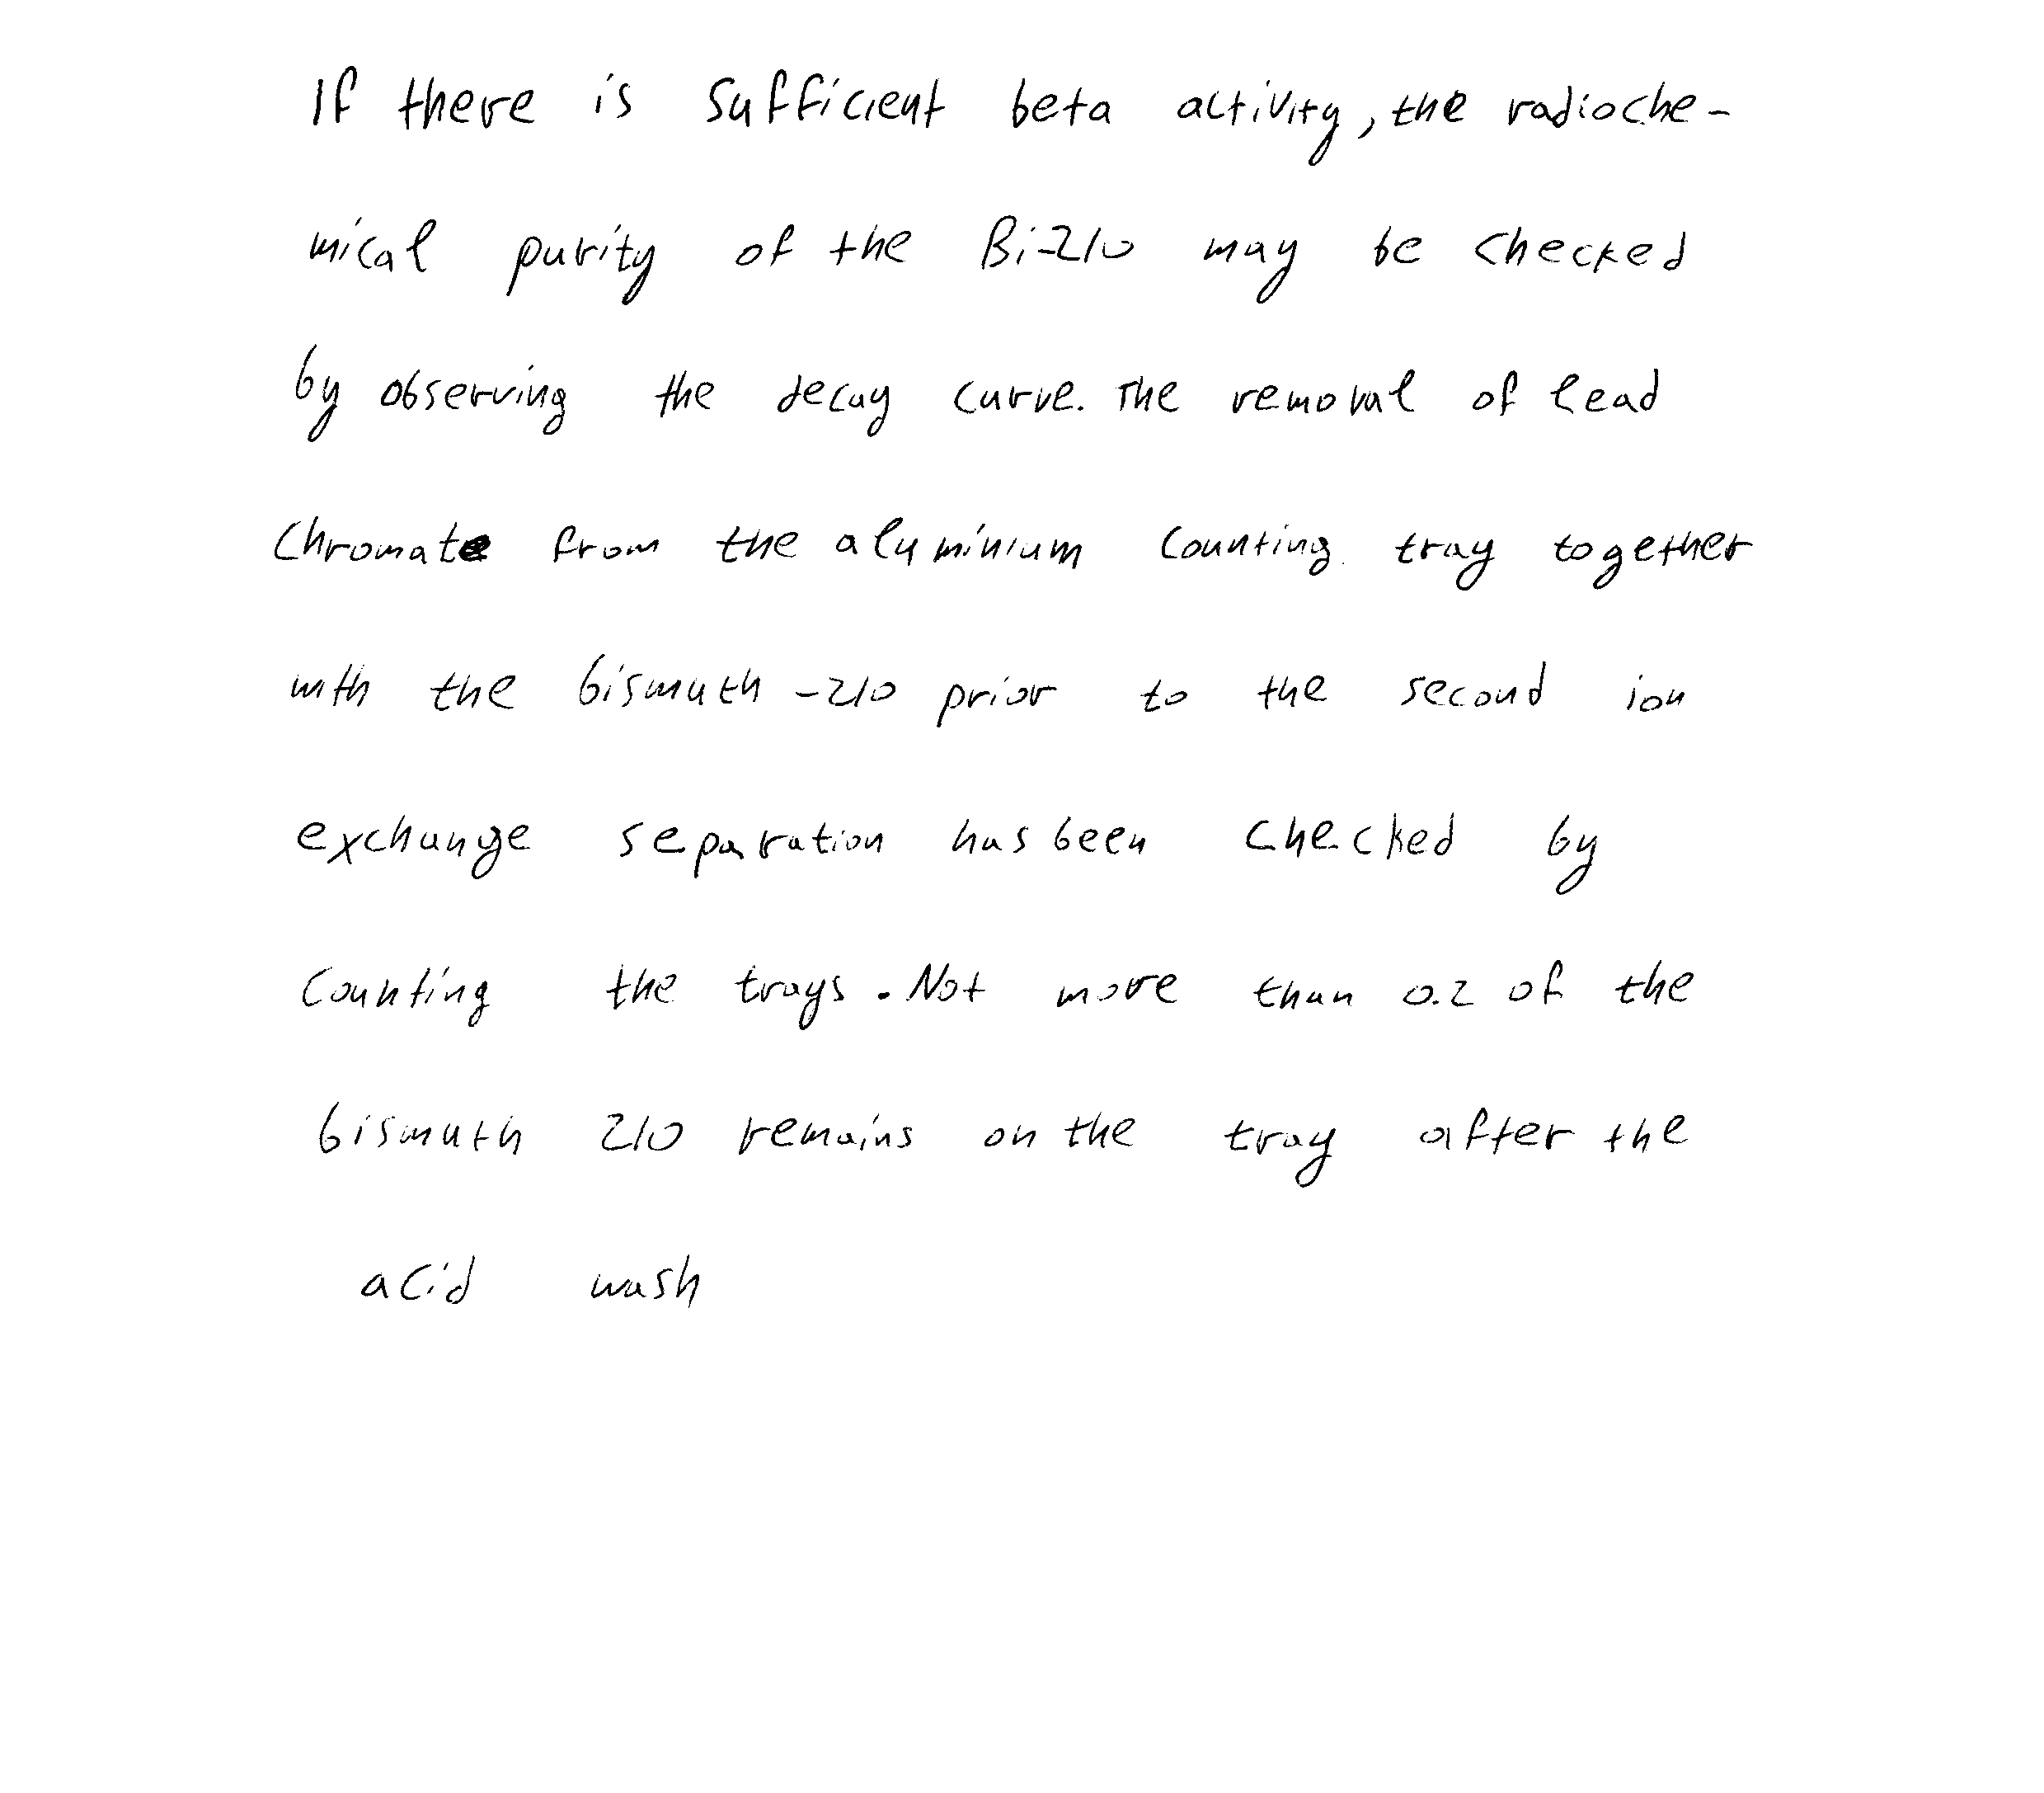 If there is sufficient beta activity, the radioche-
mical purity of the Bi-210 may be checked
by observing the decay curve. The removal of lead
chromate from the aluminium counting tray together
with the bismuth-210 prior to the second ion
exchange separation has been checked by
counting the trays. Not more than 0.2 of the
bismuth 210 remains on the tray after the
acid wash